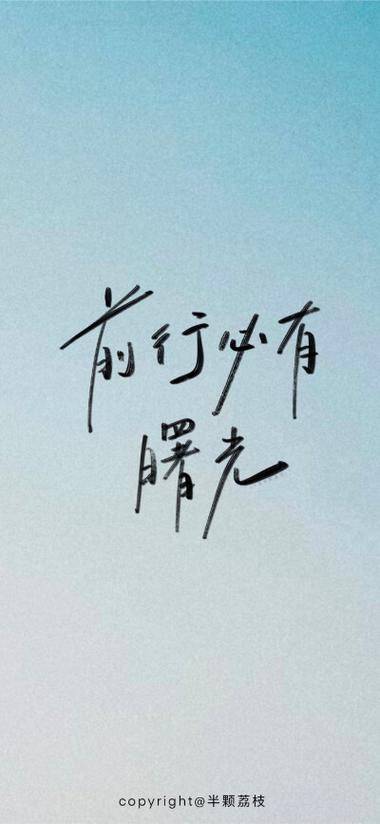 前行必有
曙光
copyright@半颗荔枝